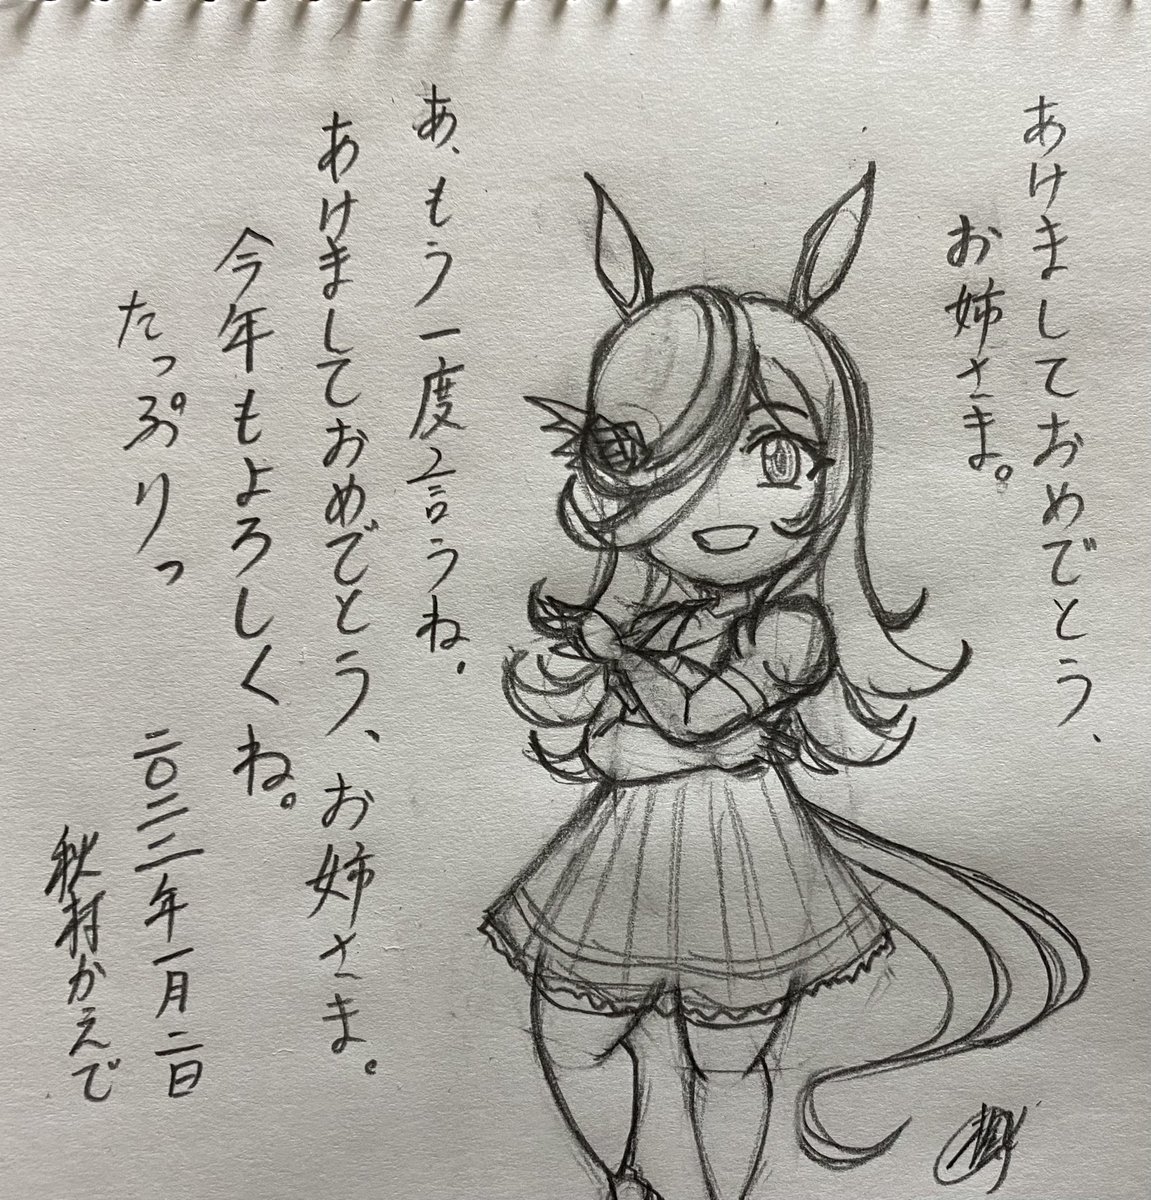 あけましておめでとう、
お姉さま。
あ、もう一度言うね。
あけましておめでとう、お姉さま。
今年もよろしくね。
たっぷりっ
二〇二二年一月二日
秋村かえで